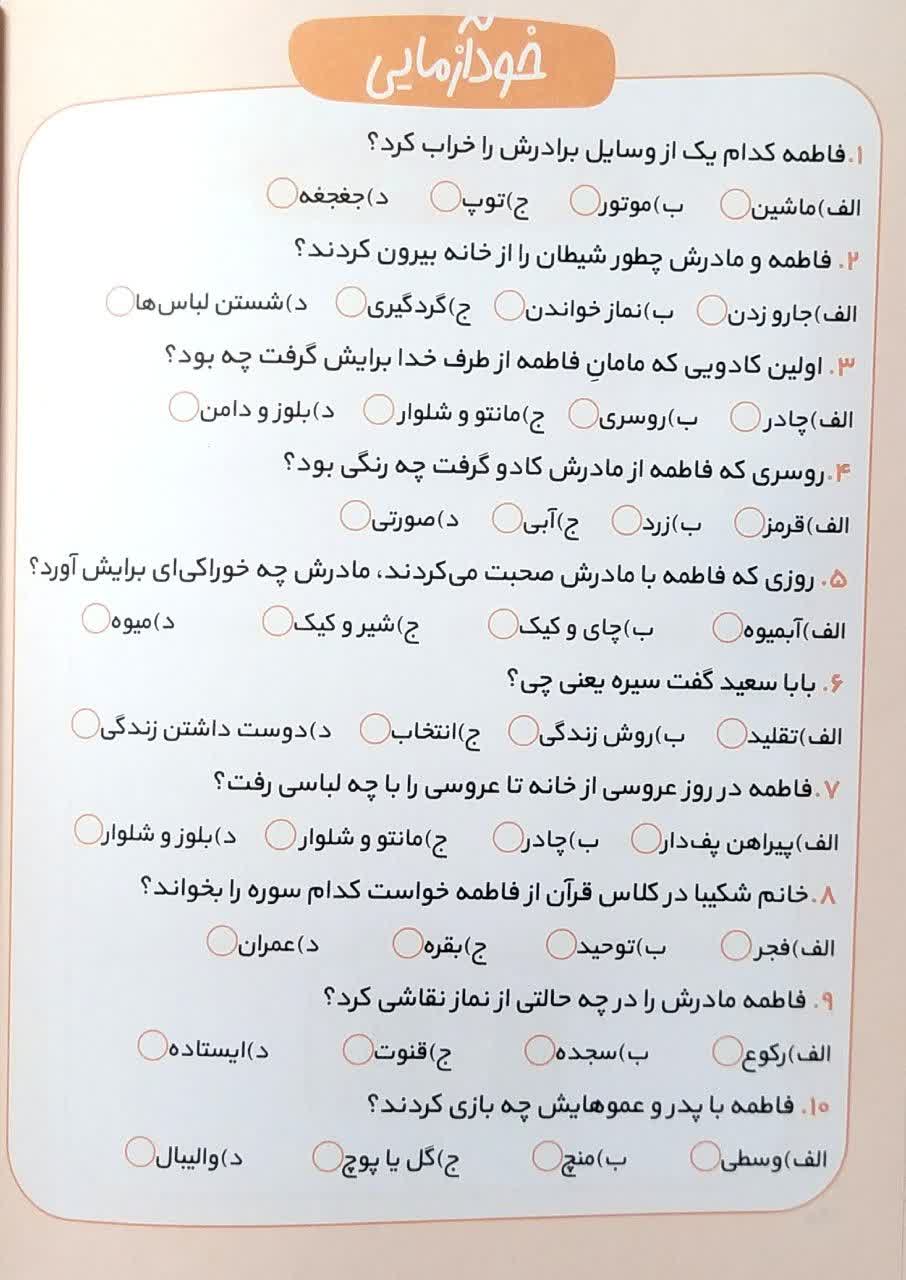 خودآزمایی
۱. فاطمه کدام یک از وسایل برادرش را خراب کرد؟
الف)ماشین ب)موتور ج)توپ د)جغجغه
۲. فاطمه و مادرش چطور شیطان را از خانه بیرون کردند؟
الف)جارو زدن ب)نماز خواندن ج)گردگیری د)شستن لباس‌ها
۳. اولین کادویی که مامانِ فاطمه از طرف خدا برایش گرفت چه بود؟
الف)چادر ب)روسری ج)مانتو و شلوار د)بلوز و دامن
۴. روسری که فاطمه از مادرش کادو گرفت چه رنگی بود؟
الف)قرمز ب)زرد ج)آبی د)صورتی
۵. روزی که فاطمه با مادرش صحبت می‌کردند، مادرش چه خوراکی‌ای برایش آورد؟
الف)آبمیوه ب)چای و کیک ج)شیر و کیک د)میوه
۶. بابا سعید گفت سیره یعنی چی؟
الف)تقلید ب)روش زندگی ج)انتخاب د)دوست داشتن زندگی
۷. فاطمه در روز عروسی از خانه تا عروسی را با چه لباسی رفت؟
الف)پیراهن پف‌دار ب)چادر ج)مانتو و شلوار د)بلوز و شلوار
۸. خانم شکیبا در کلاس قرآن از فاطمه خواست کدام سوره را بخواند؟
الف)فجر ب)توحید ج)بقره د)عمران
۹. فاطمه مادرش را در چه حالتی از نماز نقاشی کرد؟
الف)رکوع ب)سجده ج)قنوت د)ایستاده
۱۰. فاطمه با پدر و عموهایش چه بازی کردند؟
الف)وسطی ب)منچ ج)گل یا پوچ د)والیبال